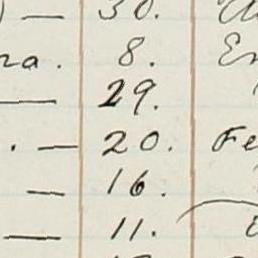 — 30.
ra. 8. En
— 29.
. — 20. Fe
— 16.
— 11.